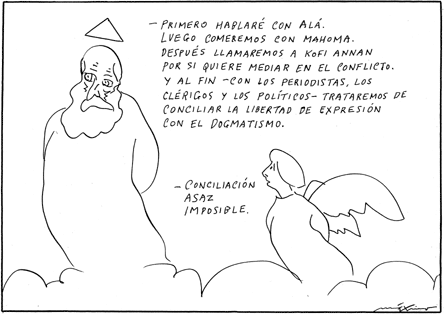 - PRIMERO HABLARÉ CON ALÁ.
LUEGO COMEREMOS CON MAHOMA.
DESPUÉS LLAMAREMOS A KOFI ANNAN
POR SI QUIERE MEDIAR EN EL CONFLICTO.
Y AL FIN -CON LOS PERIODISTAS, LOS
CLÉRIGOS Y LOS POLÍTICOS- TRATAREMOS DE
CONCILIAR LA LIBERTAD DE EXPRESIÓN
CON EL DOGMATISMO.
- CONCILIACIÓN
ASAZ
IMPOSIBLE.
máximo